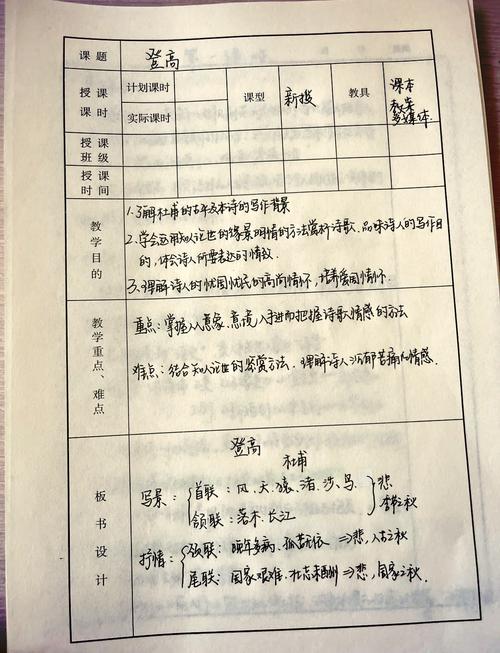 课题 登高
授课课时 计划课时 课型 新授 教具 课本 教案 多媒体.
实际课时
授课班级
授课时间
教学目的
1.了解杜甫的生平及本诗的写作背景
2.学会运用知人论世的缘景明情的方法赏析诗歌.品味诗人的写作目
的,体会诗人所要表达的情议.
3.理解诗人的忧国忧民的高尚情怀,培养爱国情怀.
教学重点、难点
重点:掌握从意象、意境入手进而把握诗歌情感的方法
难点:结合知人论世的鉴赏方法.理解诗人沉郁苦痛的情感.
板书设计
登高
杜甫
写景:首联:风、天、猿、渚、沙、鸟 悲
颔联:落木、长江 季节之秋
抒情:颈联:晚年多病、孤苦无依 ⇒悲,人生之秋
尾联:国家艰难、壮志未酬⇒悲,国家之秋.